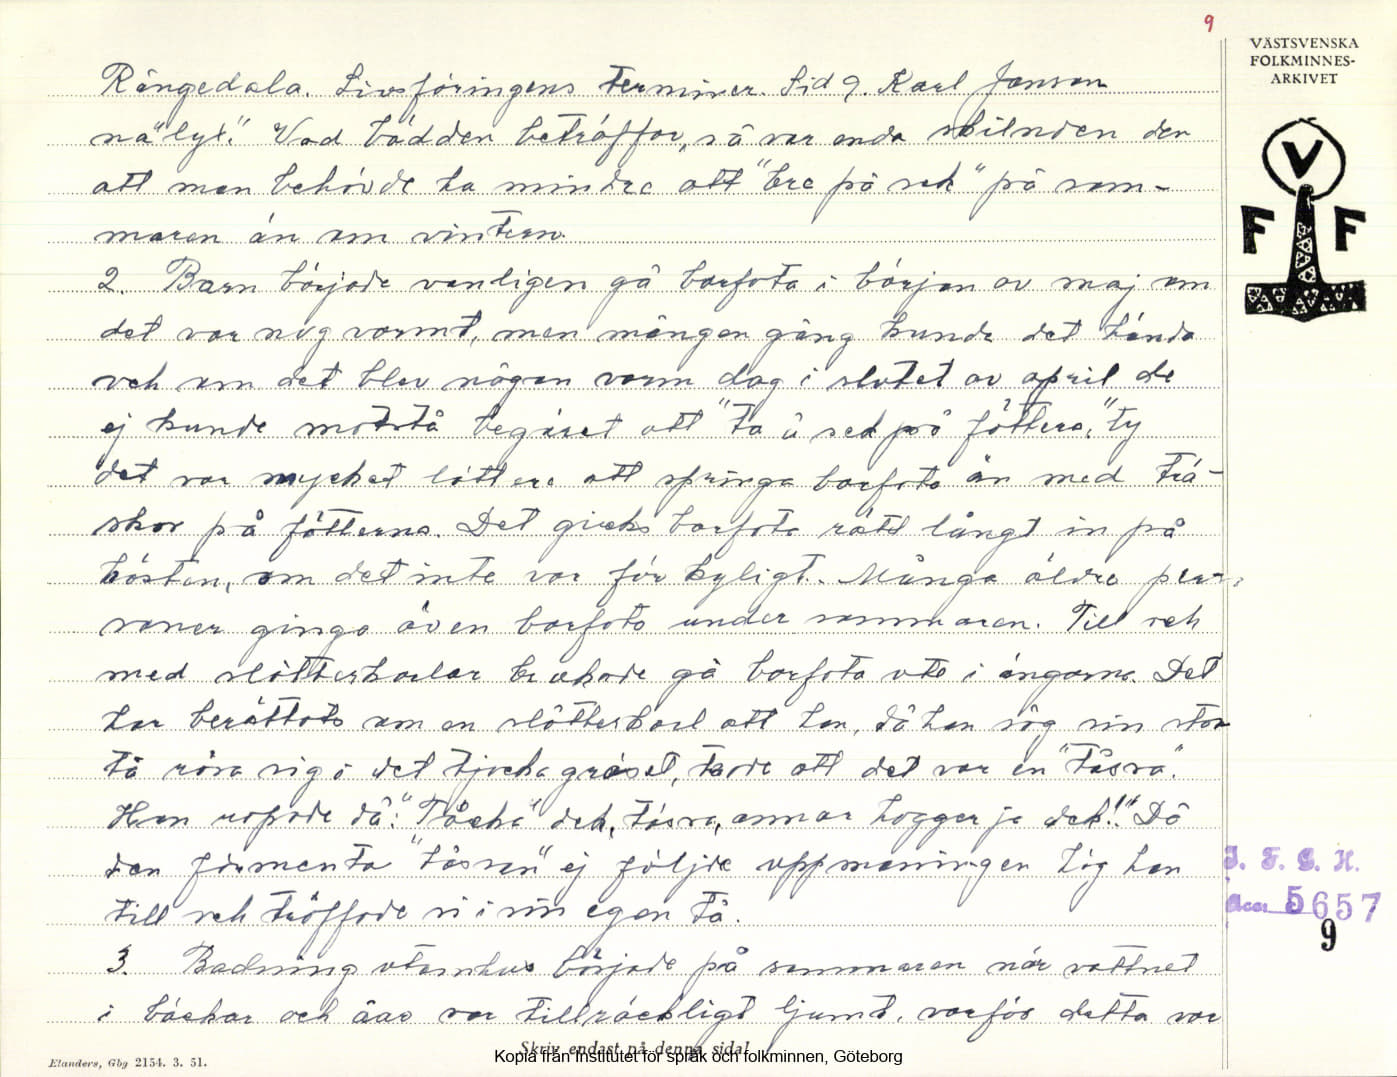 9
VÄSTSVENSKA
FOLKMINNES-
ARKIVET
V
F F
Rångedala. Livsföringens terminer. Sid 9. Karl Janson
nä "lyt". Vad bädden beträffar, så var enda skilnden den
att man behövde ha mindre att "bre på sek" på som-
maren än om vintern.
2. Barn började vanligen gå barfota i början av maj om
det var nog varmt, men mången gång kunde det hända
och om det blev någon varm dag i slutet av april de
ej kunde motstå begäret att "ta å sed på föttera", ty
det var mycket lättare att springa barfota än med trä-
skor på fötterna. Det gicks barfota rätt långt in på
hösten, om det inte var för kyligt. Många äldre per-
soner gingo även barfota under sommaren. Till och
med slåtterkarlar brukade gå barfota ute i ängarna. Det
har berättats om en slåtterkarl att han, då han såg sin stora
tå röra sig i det tjocka gräset, trode att det var en "tåsra".
Han ropade då: "Påcka" dek, tåsra, annar hogger ja dek!". Då
den förmenta "tåsran" ej följde uppmaningen hög han
till och träffade si i sin egen tå.
3. Badning utomhus började på sommaren när vattnet
i bäckar och åar var tillräckligt ljumt, varför detta var
I. F. G. H.
Acc. 5657
9
Skriv endast på denna sida!
Elanders, Gbg 2154. 3. 51.
Kopia från Institutet för språk och folkminnen, Göteborg